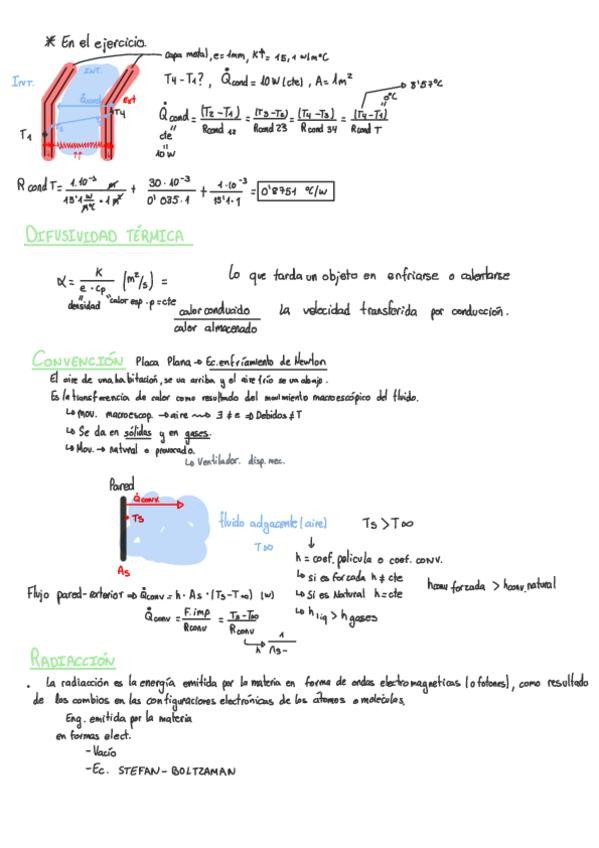 * En el ejercicio.
capa metal, e=1mm, K↑= 15,1 w/m°C
INT.
INT.
T4-T1? , Q̇cond = 10W (cte) , A= 1m²
Q̇cond
Ext
T4
T1
Q̇cond = (T2-T1)/Rcond 12 = (T3-T2)/Rcond 23 = (T4-T3)/Rcond 34 = (T4-T1)/Rcond T
0°C
8'57°C
cte
10W
R cond T = 1.10⁻³ m/15'1 w/m°C · 1 m² + 30·10⁻³/0'035·1 + 1·10⁻³/15'1·1 = 0'8751 °C/W
DIFUSIVIDAD TÉRMICA
α = K/e·cp (m²/s) = calor conducido/calor almacenado
densidad calor esp. p=cte
lo que tarda un objeto en enfriarse o calentarse
la velocidad transferida por conducción.
CONVENCIÓN Placa Plana → Ec. enfriamiento de Newton
El aire de una habitación, se va arriba y el aire frío se va abajo.
Es la transferencia de calor como resultado del movimiento macroescópico del fluido.
↳ mov. macroescop. → aire ⇝ ∃ ≠ e ⇒ Debidos ≠ T
↳ Se da en sólidas y en gases.
↳ Mov. → natural o provocado.
↳ Ventilador. disp. mec.
Pared
Q̇conv.
Ts
As
fluido adyacente (aire)
T∞
Ts > T∞
h = coef. película o coef. conv.
↳ si es forzada h ≠ cte
↳ Si es Natural h = cte
↳ h liq > h gases
hconv forzada > hconv. natural
Flujo pared-exterior ⇒ Q̇conv = h · As · (Ts-T∞) (w)
Q̇conv = F. imp/Rconv = Ts-T∞/Rconv
RADIACCIÓN
· La radiacción es la energía emitida por la materia en forma de ondas electromagneticas (o fotones), como resultado
de los cambios en las configuraciones electrónicas de los átomos o moleculas.
Eng. emitida por la materia
en formas elect.
- Vacío
- Ec. STEFAN - BOLTZAMAN